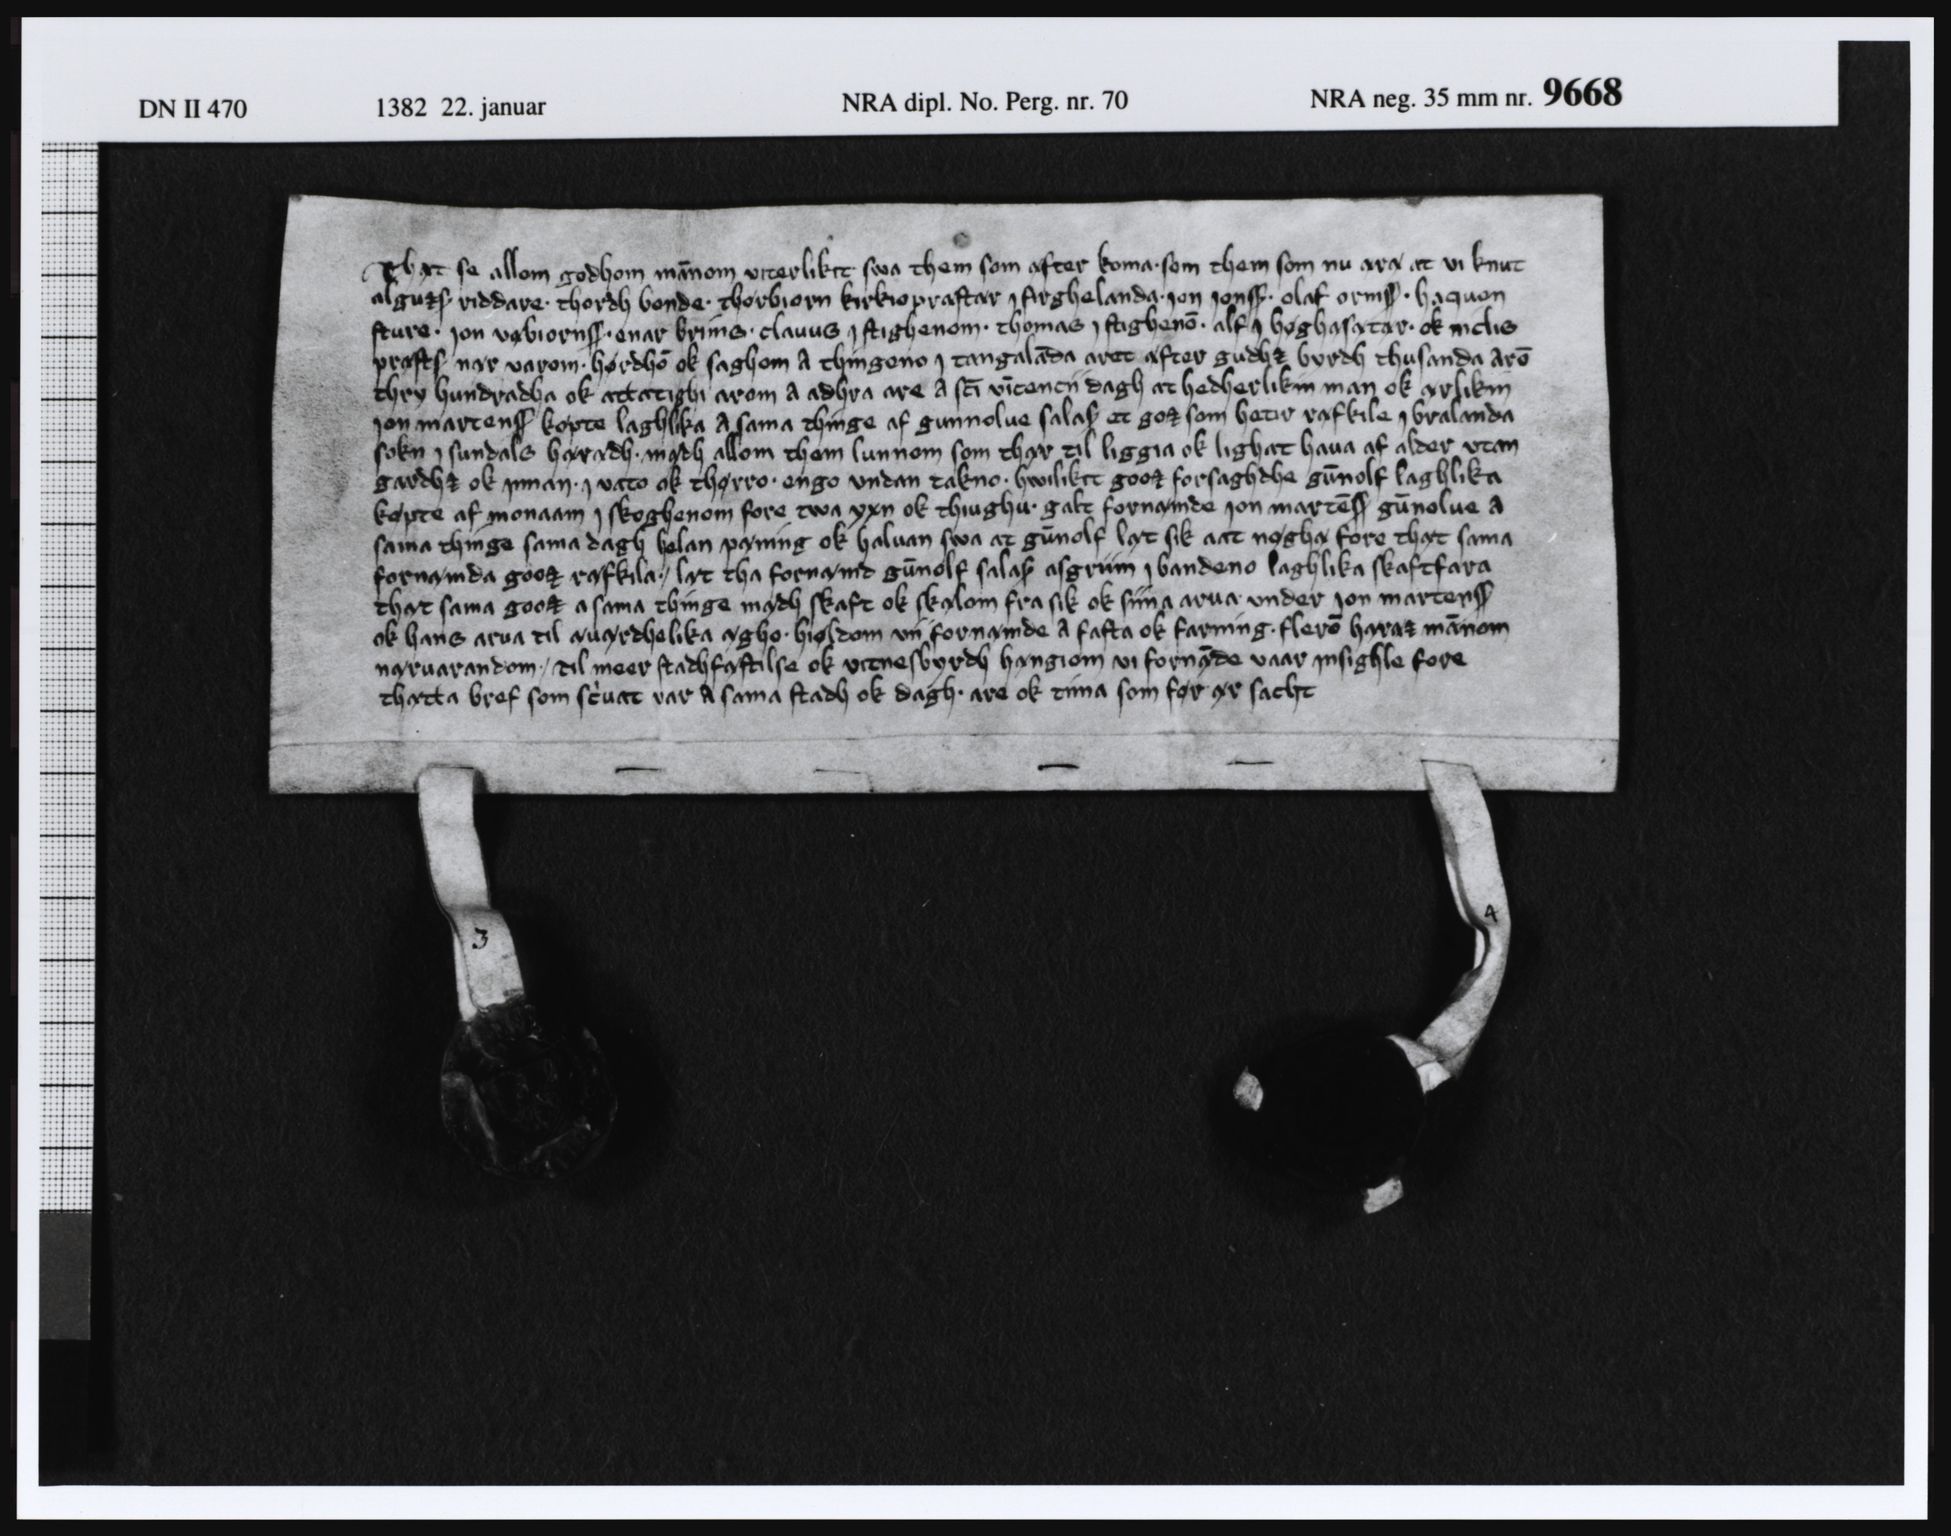 DN II 470 1382 22. januar NRA dipl. No. Perg. nr. 70 NRA neg. 35 mm nr. 9668
Thæt se allom godhom mānom viterlikit swa them som æfter koma· som them som nu æræ at vi knut
riddare· thordh bonde· thorbiorn kirkiopræstær j færghelanda· jon jonss· olaf ormss· haquon
sture· jon væbiornss· enar brims· clauus j stighenom· thomas j stighenō· alf j bøghasætær· ok niclis
nær varom· hørdhō ok saghom A thingeno j tangalāda aret æfter gudhꝫ byrdh thusanda Arō
thry hundradha ok attatighi arom A adhra are A sc̄i vīcencii dagh at hedherlikin man ok ærlikin
jon martenss køpte laghlika A sama thinge af gunnolue et goꝫ som hetir rafkile j bralanda
sokn j sundals hæradh· mædh allom them lunnom som thær til liggia ok lighat haua af alder vtan
gardhꝫ ok jnnan· j vato ok thørro· engo vndan takno· hwilikit gooꝫ forsaghdhe gūnolf laghlika
køpte af monaam j skoghenom fore twa yxn ok thiughu· galt fornæmde jon martēss gūnolue A
sama thinge sama dagh helan pæning ok haluan swa at gūnolf læt sik aat nøghæ fore thæt sama
fornæmda gooꝫ rafkila·/ læt tha fornæmt gūnolf asgrim j bandeno laghlika skaftfara
thæt sama gooꝫ a sama thinge mædh skaft ok skælom fra sik ok sina arua vnder jon martenss
ok hans arua til æuærdhelika ægho· hioldom vii fornæmde A fasta ok færning· flerō hæraꝫ mānom
næruarandom·/ til meer stadhfæstilse ok vitnesbyrdh hængiom vi fornǣde vaar jnsighle fore
thætta bref som sc̀uat var A sama stadh ok dagh· are ok tima som før ær sacht
3
4